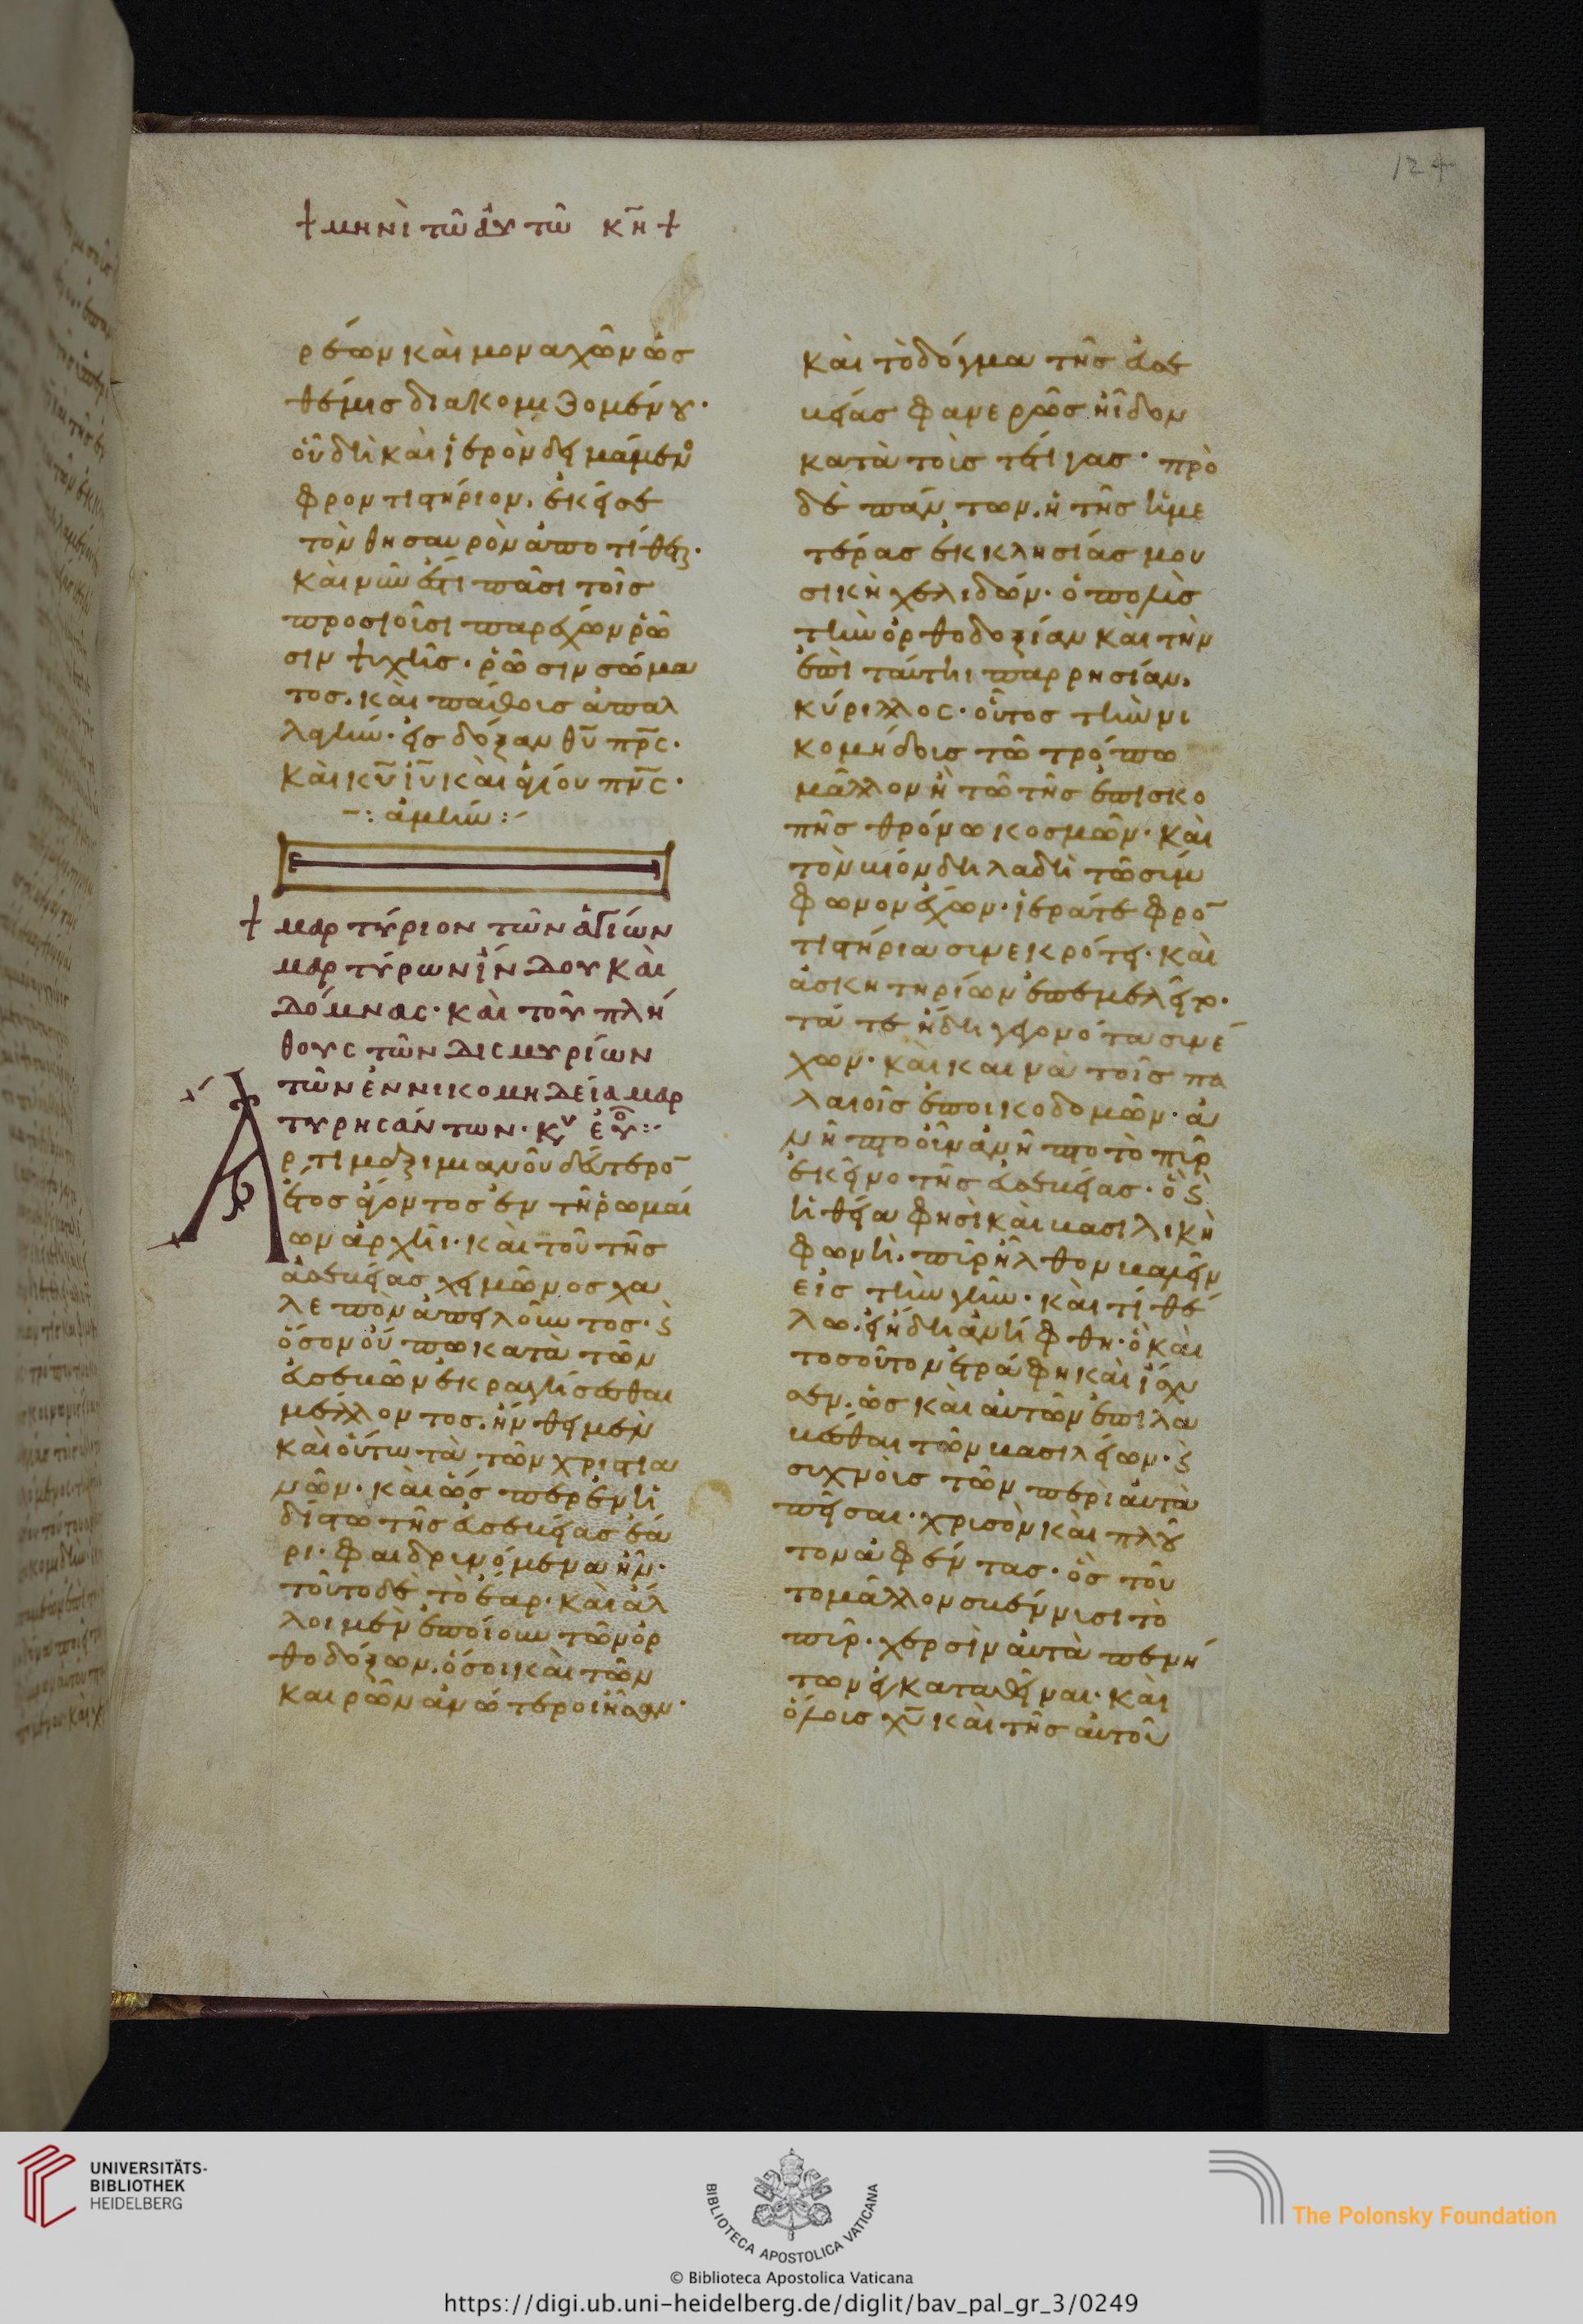 124
† μηνὶ τῶ αὐτῶ κη †
ρέων καὶ μοναχῶν ὡς
θέμις διακομιζομένου·
οὗ δὴ καὶ ἱερὸν δειμάμενος
φροντιστήριον, ἐκεῖσε
τὸν θησαυρὸν ἀποτίθει·
καὶ νῦν ἐστι πᾶσι τοῖς
προσιοῦσι παρέχων ῥῶ
σιν ψυχῆς· ῥῶσιν σώμα
τος, καὶ παθῶν ἀπαλ
λαγήν· εἰς δόξαν θυ πρς·
καὶ κυ ιυ καὶ ἁγίου πνς·
-: ἀμήν :-
† μαρτύριον τῶν ἁγίων
μαρτύρων ἴνδου καὶ
δόμνας· καὶ τοῦ πλή
θους τῶν δισμυρίων
τῶν ἐν νικομηδεία μαρ
τυρησάντων· κυ εὐ:-
Αρτι μαξιμιανοῦ δεύτερο
ἔτος ἄγοντος ἐν τῆ ῥωμαί
ων ἀρχῆ· καὶ τοῦ τῆς
ἀσεβείας χειμῶνος χα
λεπὸν ἀπειλοῦντος· καὶ
ὅσον οὔπω κατὰ τῶν
εὐσεβῶν ἐκραγήσεσθαι
μέλλοντος, ἤνθει μὲν
καὶ οὕτω τὰ τῶν χριστια
νῶν· καὶ ὡς περ ἐν ἡ
δίστω τῆς εὐσεβείας ἔα
ρι· φαιδρυνόμενα ἦν·
τοῦτο δὲ τὸ ἔαρ· καὶ ἄλ
λοι μὲν ἐποίουν τῶν ὀρ
θοδόξων, ὅσοι καὶ τῶν
καιρῶν ἀνώτεροι ἦσαν·
καὶ τὸ δόγμα τῆς εὐσε
βείας φανερῶς ἦδον
κατὰ τοὺς τέττιγας· πρὸ
δὲ πάντων, ἡ τῆς ἡμε
τέρας ἐκκλησίας μου
σικὴ χελιδών· ὁ πολὺς
τὴν ὀρθοδοξίαν καὶ τὴν
ἐπὶ ταύτη παρρησίαν,
κύριλλος· οὗτος τὴν νι
κομήδους τῶ τρόπω
μᾶλλον ἢ τῶ τῆς ἐπισκο
πῆς θρόνω κοσμῶν· καὶ
τὸν βίον δηλαδὴ τῶ σύμ
φωνον ἔχων· ἱερά τε φρο
τιστήρια συνεκρότει· καὶ
ἀσκητηρίων ἐπεμελεῖτο·
τά τε ἤδη γεγονότα συνέ
χων· καὶ καινὰ τοῖς πα
λαιοῖς ἐποικοδομῶν· ἀ
νῆπτο οὖν ἀνῆπτο τὸ πῦρ
ἐκεῖνο τῆς εὐσεβείας· ὃ καὶ
ἡ θεία φησὶ καὶ βασιλικὴ
φωνή, πῦρ ἦλθον βαλεῖν
εἰς τὴν γῆν· καὶ τί θέ
λω, εἰ ἤδη ἀνήφθη· ὃ καὶ
τοσοῦτον ἐτράφη καὶ ἴσχυ
σεν, ὡς καὶ αὐτῶν ἐπιλα
βέσθαι τῶν βασιλείων· καὶ
συχνοὺς τῶν περὶ αὐτὰ
πεῖσαι· χρυσὸν καὶ πλοῦ
τον ἀφέντας· ὃς τοῦ
το μᾶλλον σβέννυσι τὸ
πῦρ· χερσὶν αὐτὰ πενή
των ἐγκαταθεῖναι· καὶ
ὅλους χυ καὶ τῆς αὐτοῦ
UNIVERSITÄTS-
BIBLIOTHEK
HEIDELBERG
BIBLIOTECA APOSTOLICA VATICANA
The Polonsky Foundation
© Biblioteca Apostolica Vaticana
https://digi.ub.uni-heidelberg.de/diglit/bav_pal_gr_3/0249